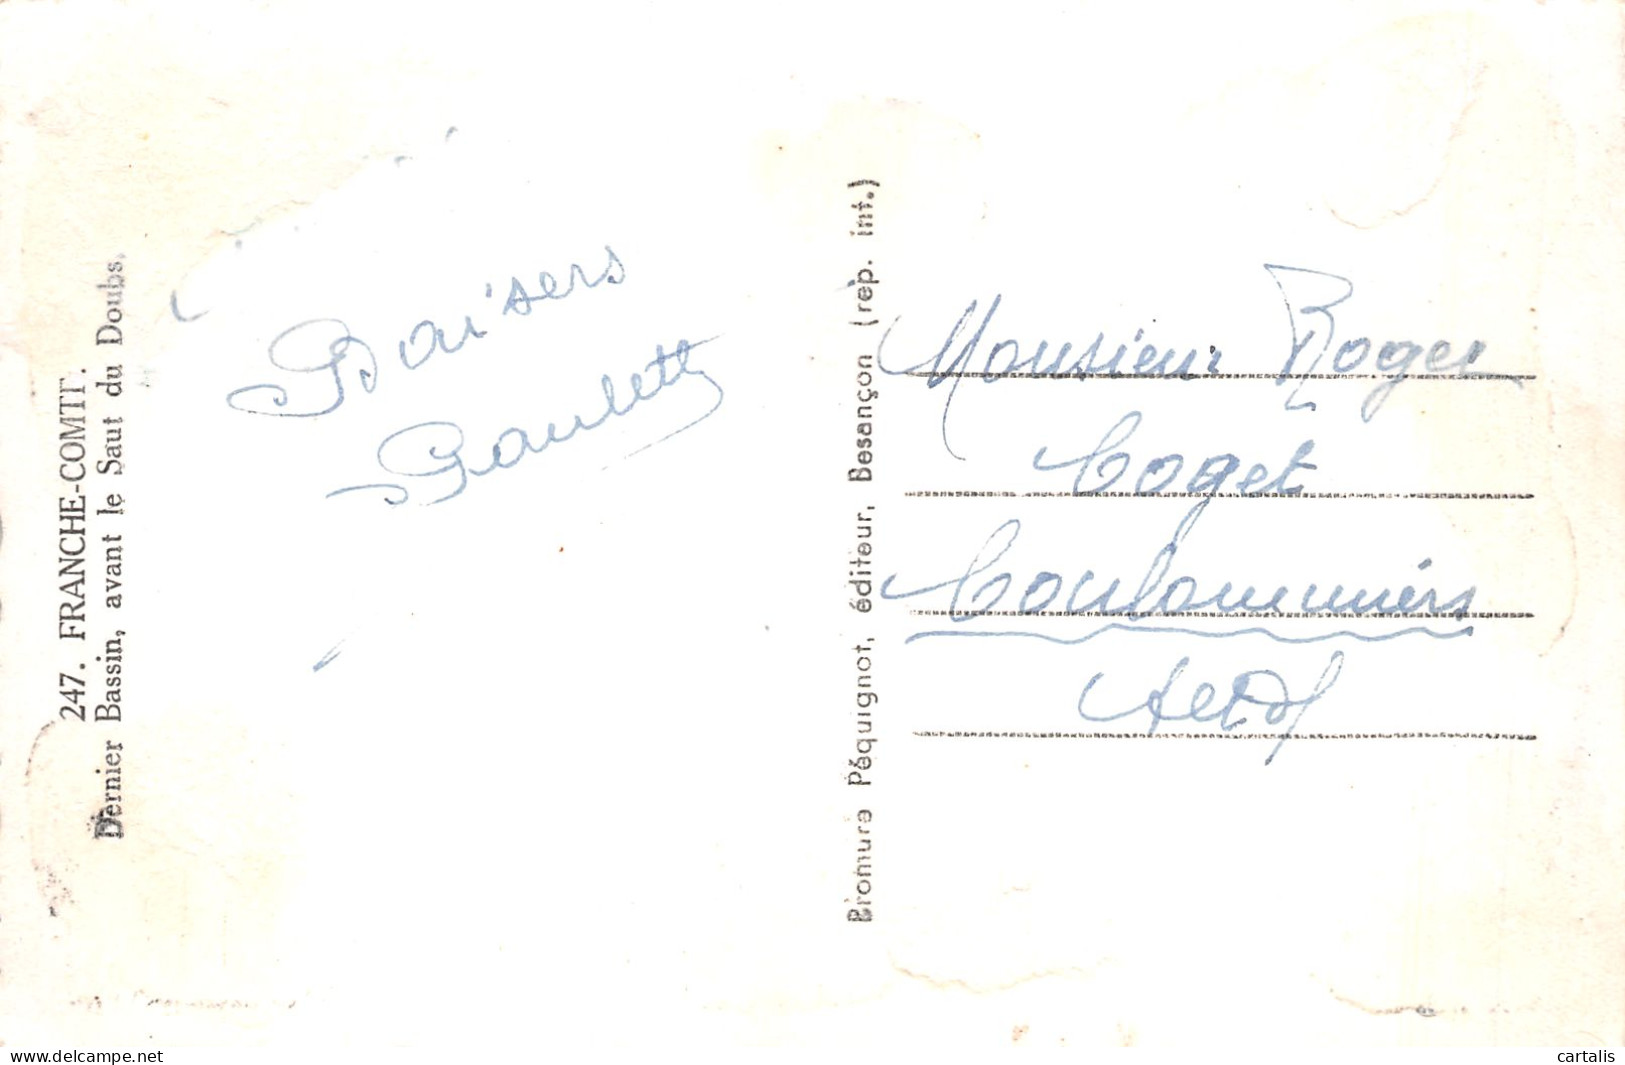 247. FRANCHE-COMTÉ.
Dernier Bassin, avant le Saut du Doubs.
Baisers
Paulette
Bromure Péquignot, éditeur, Besançon (rep. int.)
Monsieur Roger
Coget
Coulommiers
www.delcampe.net
cartalis